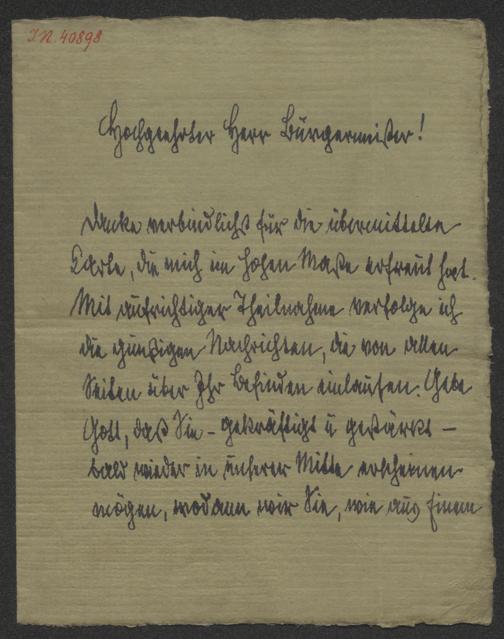 I.N. 40898
Hochgeehrter Herr Bürgermeister!
Danke verbindlichst für die übermittelte
Karte, die mich im hohen Maße erfreut hat.
Mit aufrichtiger Theilnahme verfolge ich
die günstigen Nachrichten, die von allen
Seiten über Ihr Befinden einlaufen. Gebe
Gott, daß Sie – gekräftigt u gestärkt –
bald wieder in unserer Mitte erscheinen
mögen, wodann wir Sie, wie aus Einem